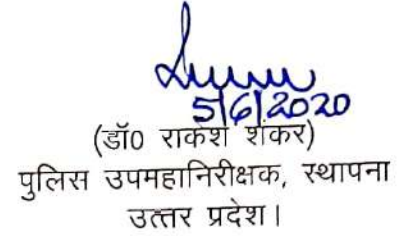 5/6/2020
(डॉ0 राकेश शंकर)
पुलिस उपमहानिरीक्षक, स्थापना
उत्तर प्रदेश।